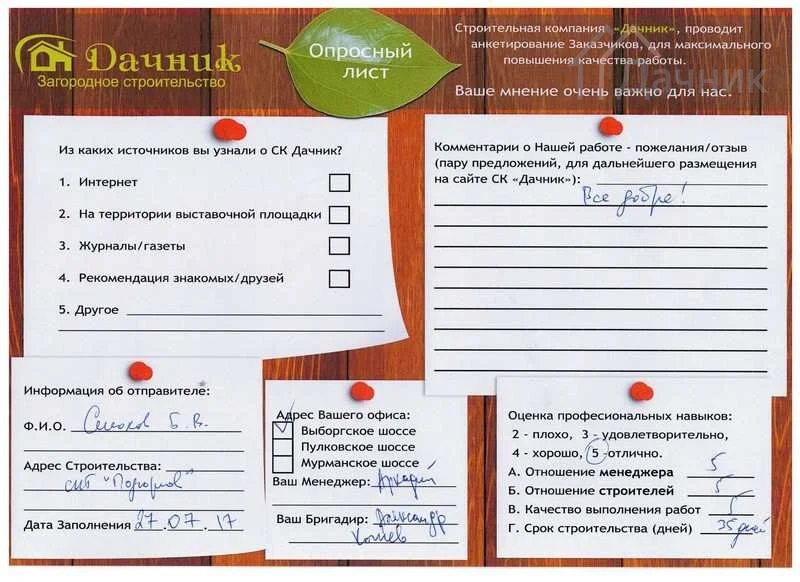 Дачник
Загородное строительство
Опросный
лист
Строительная компания «Дачник», проводит
анкетирование Заказчиков, для максимального
повышения качества работы.
Ваше мнение очень важно для нас.
Дачник
Из каких источников вы узнали о СК Дачник?
1. Интернет
2. На территории выставочной площадки
3. Журналы/газеты
4. Рекомендация знакомых/друзей
5. Другое
Комментарии о Нашей работе - пожелания/отзыв
(пару предложений, для дальнейшего размещения
на сайте СК «Дачник»):
Все добре!
Информация об отправителе:
Ф.И.О. Б.В.
Адрес Строительства:
Дата Заполнения 27.07.17
Адрес Вашего офиса:
Выборгское шоссе
Пулковское шоссе
Мурманское шоссе
Ваш Менеджер: Аркадий
Ваш Бригадир: Александр
Оценка професиональных навыков:
2 - плохо, 3 - удовлетворительно,
4 - хорошо, 5 -отлично.
А. Отношение менеджера 5
Б. Отношение строителей 5
В. Качество выполнения работ 5
Г. Срок строительства (дней) 35 дней